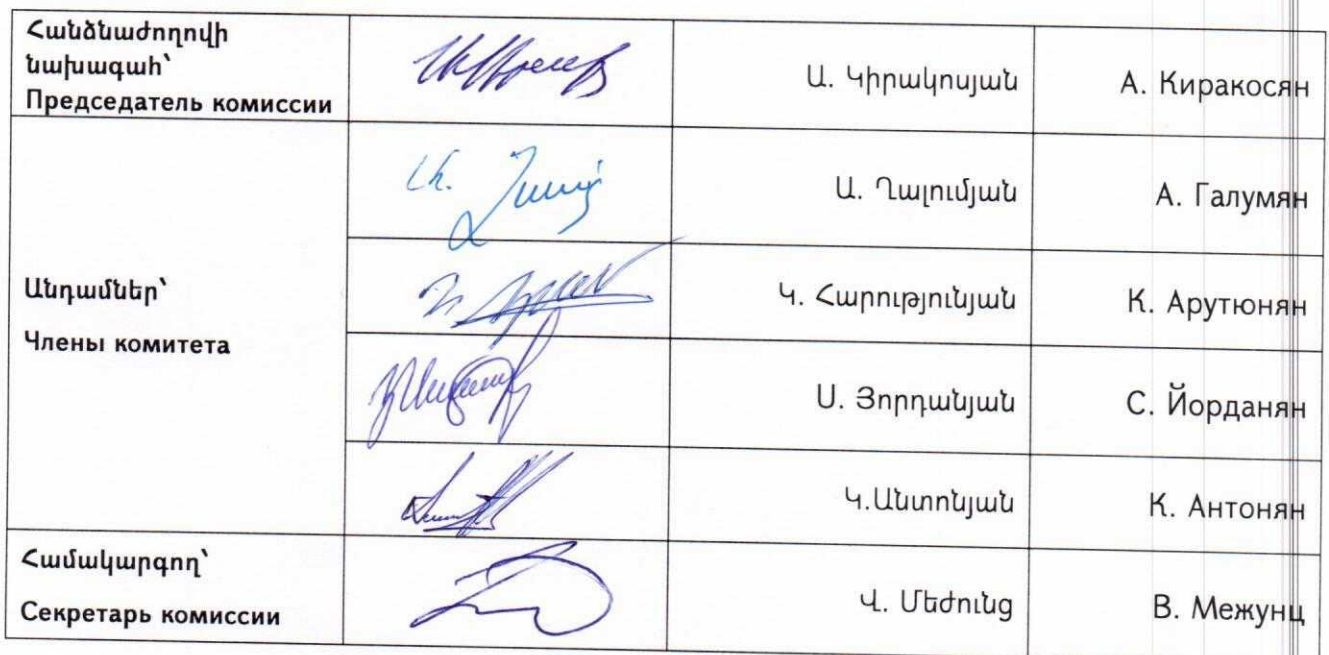 Հանձնաժողովի
նախագահ՝
Председатель комиссии
Ա. Կիրակոսյան
А. Киракосян
Անդամներ՝
Члены комитета
Ա. Ղալումյան
А. Галумян
Կ. Հարությունյան
К. Арутюнян
Ս. Յորդանյան
С. Йорданян
Կ.Անտոնյան
К. Антонян
Համակարգող՝
Секретарь комиссии
Վ. Մեժունց
В. Межунц